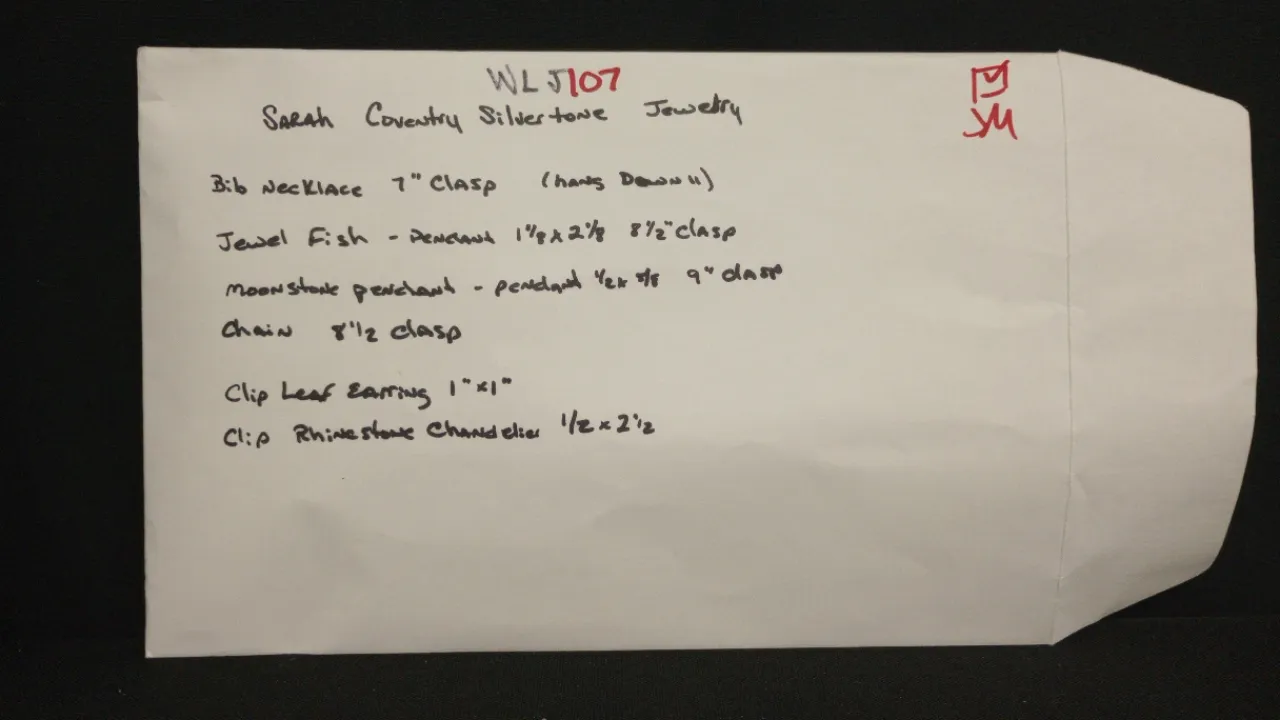 WLJ107
Sarah Coventry Silvertone Jewelry
Bib Necklace 7" Clasp (hang Down 11)
Jewel Fish - Pendant 1 1/8 x 2 1/8 8 1/2" clasp
Moonstone pendant - pendant 1/2 x 5/8 9" clasp
Chain 8 1/2 clasp
Clip Leaf Earring 1" x 1"
Clip Rhinestone Chandelier 1/2 x 2 1/2